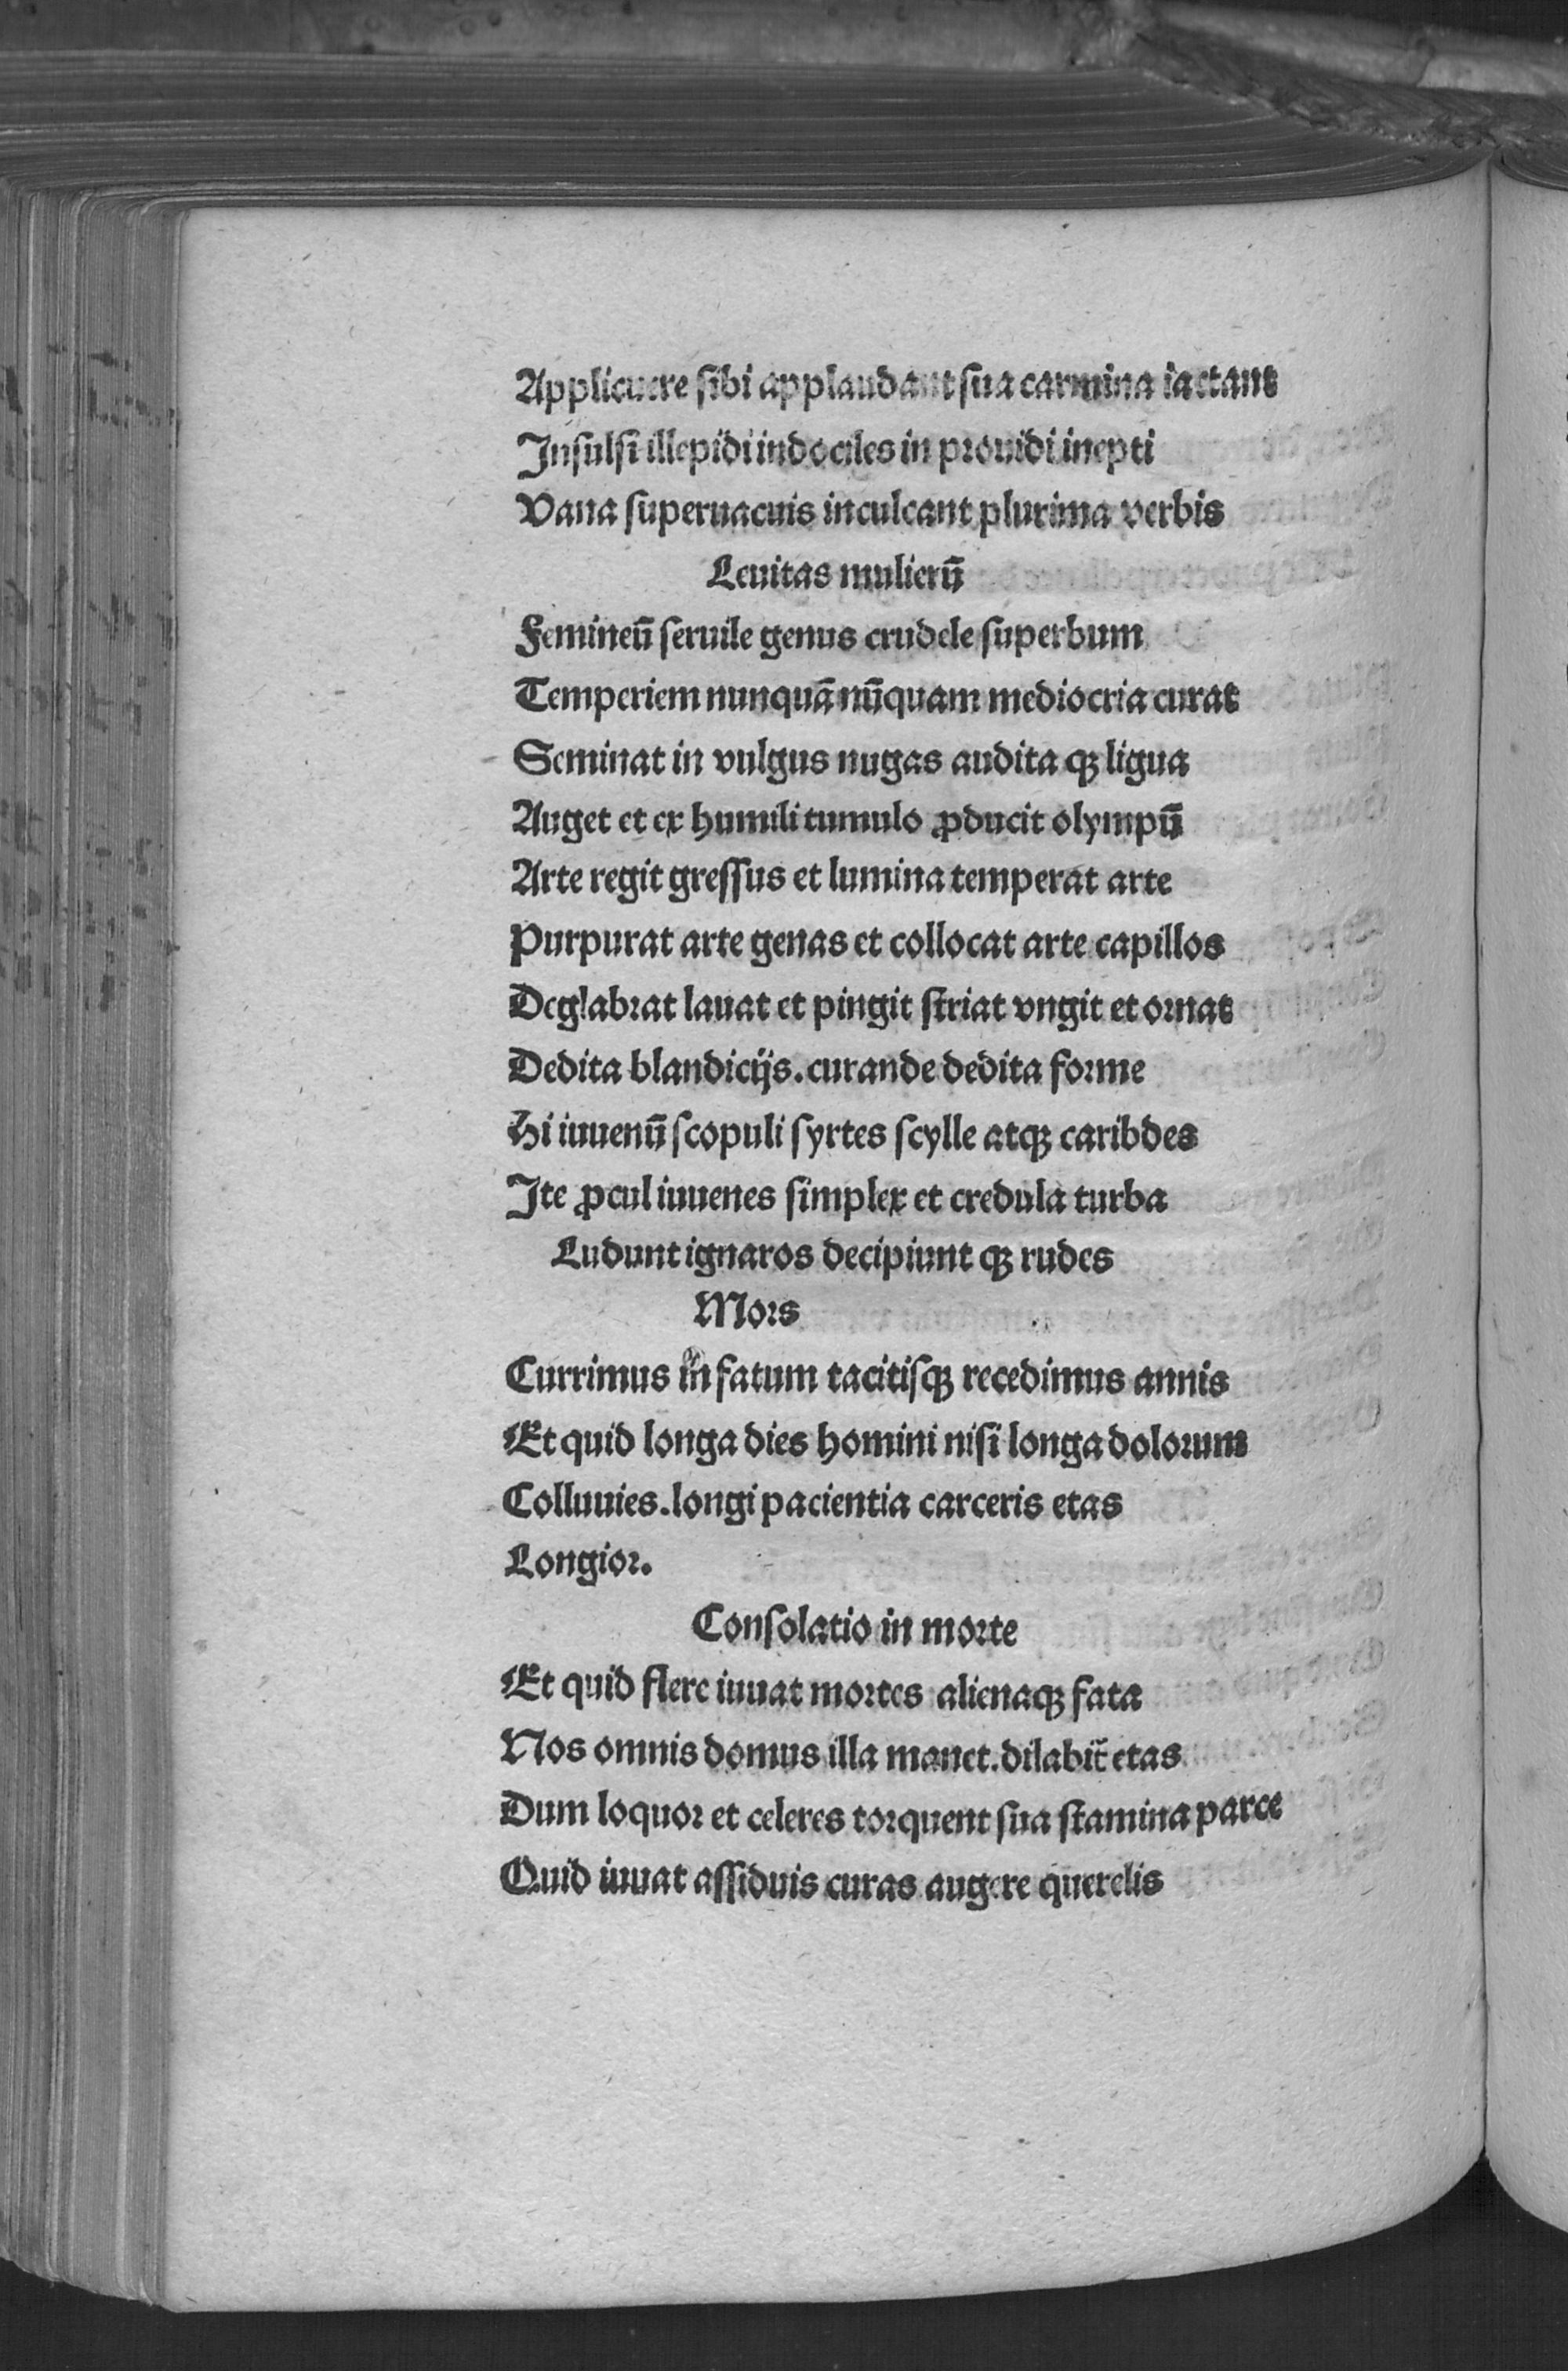 Applicuere sibi applaudant sua carmina iactant
Insulsi illepidi indociles in prouidi inepti
Vana superuacuis inculcant plurima verbis
Leuitas mulierū
Femineū seruile genus crudele superbum
Temperiem nunquā nūquam mediocria curat
Seminat in vulgus nugas audita qꝫ ligua
Auget et ex humili tumulo ꝓducit olympū
Arte regit gressus et lumina temperat arte
Purpurat arte genas et collocat arte capillos
Deglabrat lauat et pingit striat vngit et ornat
Dedita blandicijs. curande dedita forme
Hi iuuenū scopuli syrtes scylle atqꝫ caribdes
Ite ꝓcul iuuenes simplex et credula turba
Ludunt ignaros decipiunt qꝫ rudes
Mors
Currimus in fatum tacitisqꝫ recedimus annis
Et quid longa dies homini nisi longa dolorum
Colluuies. longi pacientia carceris etas
Longior.
Consolatio in morte
Et quid flere iuuat mortes alienaqꝫ fata
Nos omnis domus illa manet. dilabit̃ etas
Dum loquor et celeres torquent sua stamina parce
Quid iuuat assiduis curas augere querelis